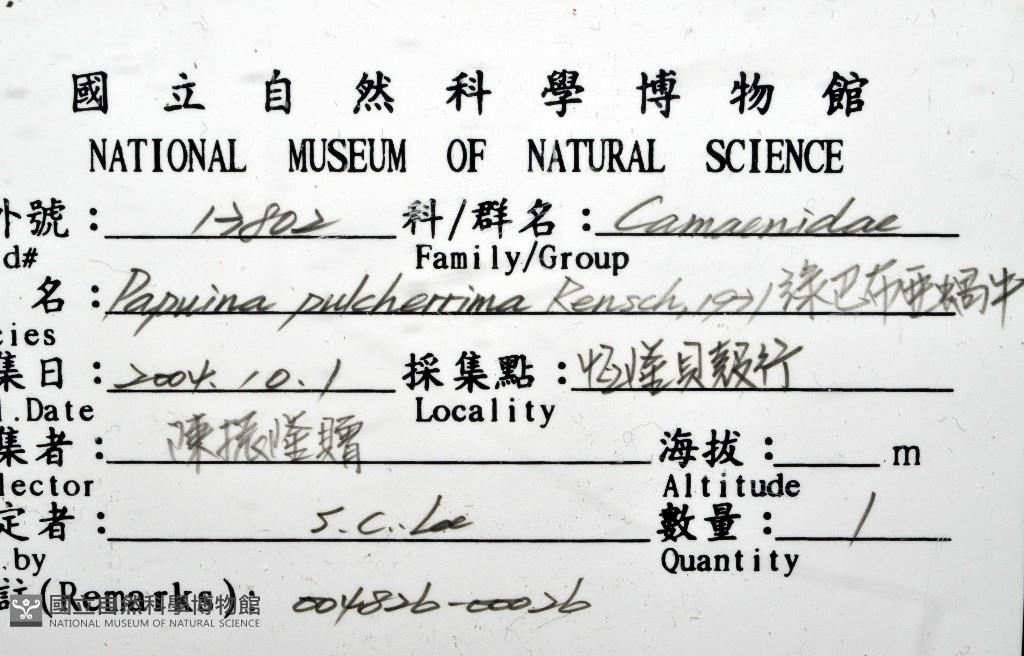 國立自然科學博物館
NATIONAL MUSEUM OF NATURAL SCIENCE
外號： 科/群名：Camaenidae
d# Family/Group
名：Papuina pulcherrima Rensch, 1931 綠巴布亞蝸牛
cies
集日：2004.10.1 採集點： 貝殼行
.Date Locality
集者：陳振 贈 海拔： m
lector Altitude
定者：S.C. Lee 數量：1
.by Quantity
註(Remarks)：004826-00026
國立自然科學博物館
NATIONAL MUSEUM OF NATURAL SCIENCE